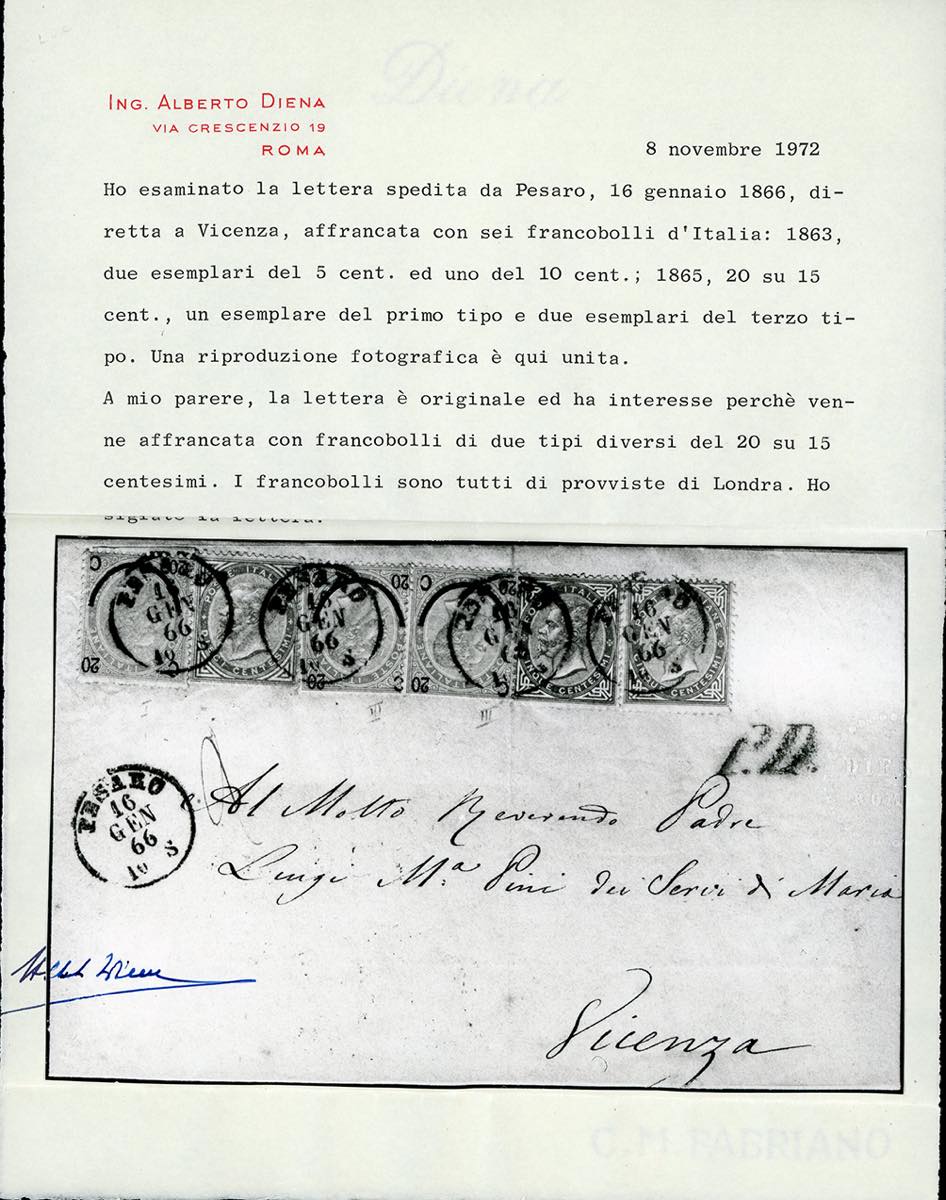 Diena
ING. ALBERTO DIENA
VIA CRESCENZIO 19
ROMA
8 novembre 1972
Ho esaminato la lettera spedita da Pesaro, 16 gennaio 1866, di-
retta a Vicenza, affrancata con sei francobolli d'Italia: 1863,
due esemplari del 5 cent. ed uno del 10 cent.; 1865, 20 su 15
cent., un esemplare del primo tipo e due esemplari del terzo ti-
po. Una riproduzione fotografica è qui unita.
A mio parere, la lettera è originale ed ha interesse perchè ven-
ne affrancata con francobolli di due tipi diversi del 20 su 15
centesimi. I francobolli sono tutti di provviste di Londra. Ho
siglato la lettera.
C 20 20 C 20
16 GEN 66
20 C 20 C CINQUE CENTESIMI
I III III
P.D.
PESARO
16
GEN
66
10 S
Al Molto Reverendo Padre
Luigi Mª Pini dei Servi di Maria
Vicenza
C.M FABRIANO